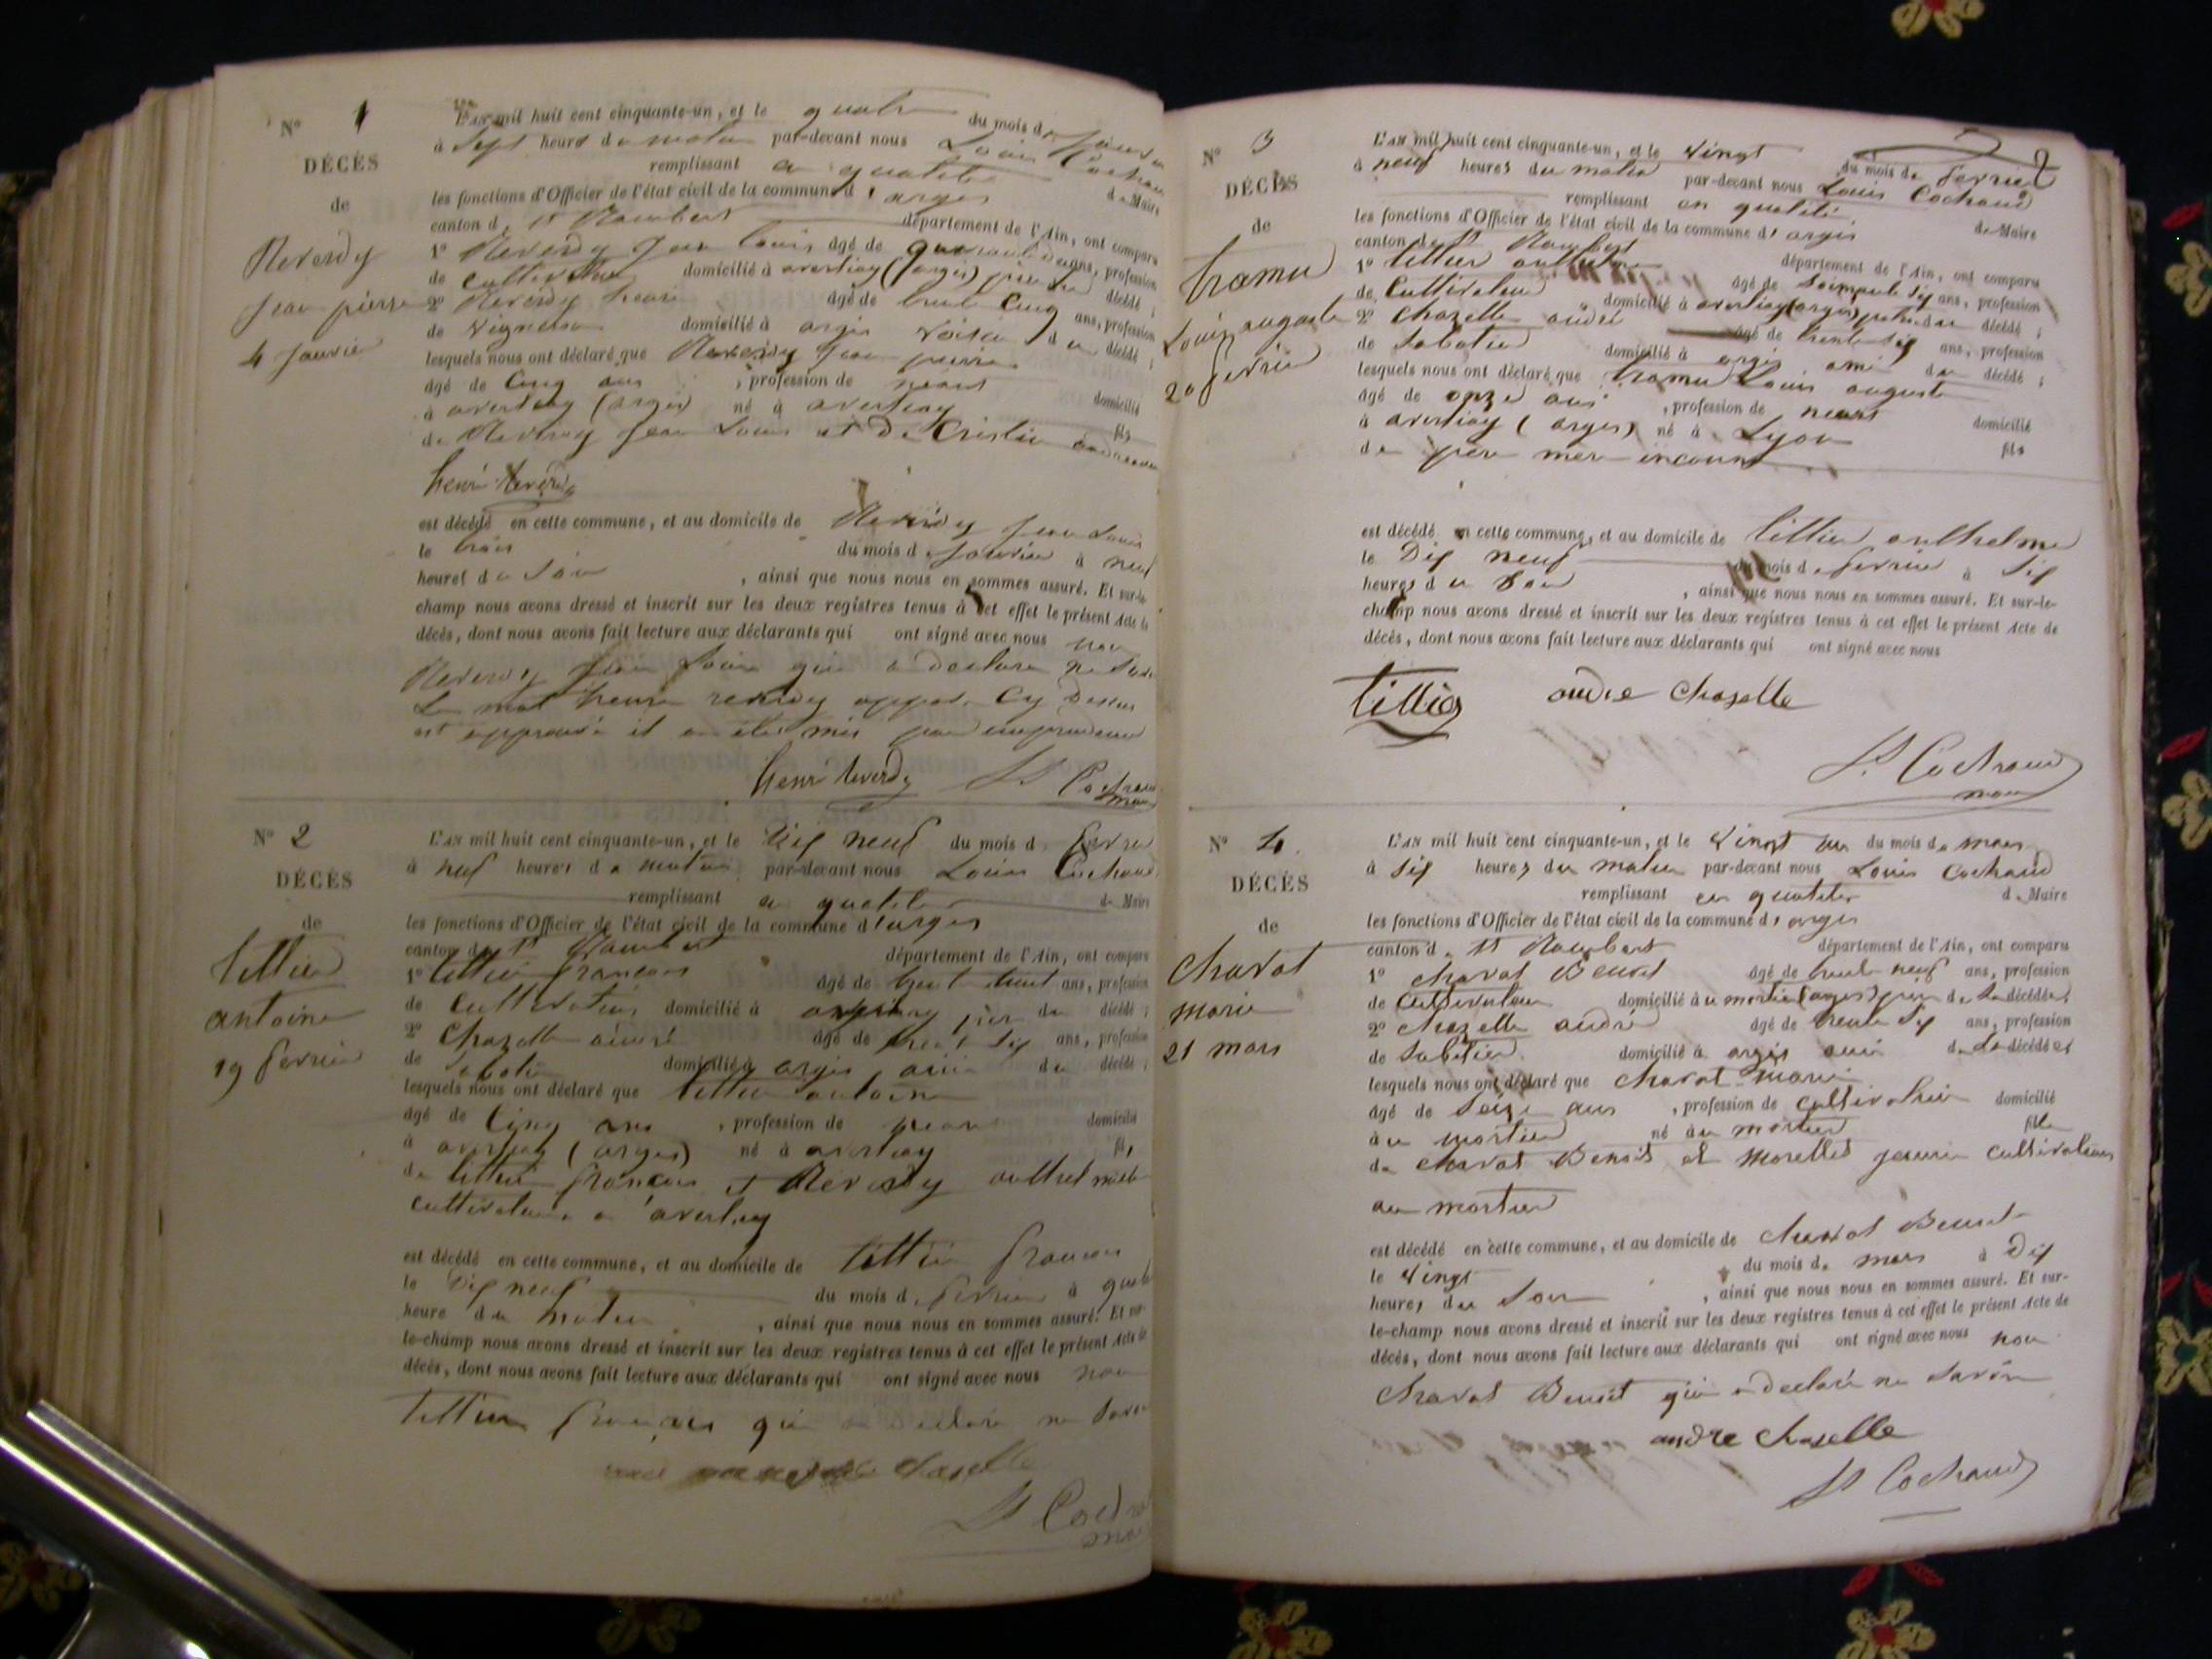 N° 1
DÉCÈS
de
Reverdy
Jean pierre
4 Janvier
L'AN mil huit cent cinquante-un, et le quatre du mois de Janvier
à Sept heures du matin par-devant nous Louis Cochand
remplissant en qualité de Maire
les fonctions d'Officier de l'état civil de la commune d'argis
canton de St Rambert département de l'Ain, ont comparu
1° Reverdy Jean Louis âgé de ans, profession
de cultivateur domicilié à averliay (argis) décédé ;
2° Reverdy henri âgé de trente Cinq ans, profession
de vigneron domicilié à argis voisin du décédé ;
lesquels nous ont déclaré que Reverdy Jean pierre
âgé de Cinq ans , profession de néant domicilié
à averliay (argis) né à averliay fils
de Reverdy Jean Louis et De
henri Reverdy
est décédé en cette commune, et au domicile de Reverdy Jean Louis
le trois du mois de Janvier à neuf
heures du Soir , ainsi que nous nous en sommes assuré. Et sur-le-
champ nous avons dressé et inscrit sur les deux registres tenus à cet effet le présent Acte de
décès, dont nous avons fait lecture aux déclarants qui ont signé avec nous non
Reverdy Jean Louis qui a declare ne Savoir
Le mot henri reverdy appos. Cy Dessus
est approuvé il a été mis par imprudence
henri Reverdy Ls Cochand
maire
N° 2
DÉCÈS
de
tettier
antoine
19 fevrier
L'AN mil huit cent cinquante-un, et le Dix neuf du mois de fevrier
à neuf heures du matin par-devant nous Louis Cochand
remplissant en qualité de Maire
les fonctions d'Officier de l'état civil de la commune d'arges
canton de St Rambert département de l'Ain, ont comparu
1° tettier francois âgé de ans, profession
de cultivateur domicilié à père du décédé ;
2° Chazelle andré âgé de trente Six ans, profession
de Sabotier domicilié à argis ami du décédé ;
lesquels nous ont déclaré que tettier antoine
âgé de Cinq ans , profession de néant domicilié
à averliay (arges) né à averliay fils
de tettier françois et Reverdy
cultivateurs a averliay
est décédé en cette commune, et au domicile de tettier francois
le Dix neuf du mois de fevrier à quatre
heure du matin , ainsi que nous nous en sommes assuré. Et sur-
le-champ nous avons dressé et inscrit sur les deux registres tenus à cet effet le présent Acte de
décès, dont nous avons fait lecture aux déclarants qui ont signé avec nous non
tettier francois qui a declaré ne Savoir
Chaselle
Ls Cochand
maire
N° 3
DÉCÈS
de
tramu
Louis auguste
20 fevrier
2
L'AN mil huit cent cinquante-un, et le vingt du mois de fevrier
à neuf heures du matin par-devant nous Louis Cochand
remplissant en qualité de Maire
les fonctions d'Officier de l'état civil de la commune d'argis
canton de St Rambert département de l'Ain, ont comparu
1° tettier anthelme âgé de ans, profession
de Cultivateur domicilié à averliay (arges) du décédé ;
2° Chazelle andré âgé de trente Six ans, profession
de Sabotier domicilié à argis ami du décédé ;
lesquels nous ont déclaré que tramu Louis auguste
âgé de onze ans , profession de néant domicilié
à averliay (arges) né à Lyon fils
de père mère inconnu
est décédé en cette commune, et au domicile de tettier anthelme
le Dix neuf du mois de fevrier à Six
heures du Soir , ainsi que nous nous en sommes assuré. Et sur-le-
champ nous avons dressé et inscrit sur les deux registres tenus à cet effet le présent Acte de
décès, dont nous avons fait lecture aux déclarants qui ont signé avec nous
tettier andre chaselle
Ls Cochand
maire
N° 4
DÉCÈS
de
Charat
marie
21 mars
L'AN mil huit cent cinquante-un, et le vingt un du mois de mars
à Six heures du matin par-devant nous Louis Cochand
remplissant en qualité de Maire
les fonctions d'Officier de l'état civil de la commune d'arges
canton de St Rambert département de l'Ain, ont comparu
1° Charat Benoit âgé de trente neuf ans, profession
de Cultivateur domicilié à u mortier (arges) père de La décédée ;
2° Chazelle andré âgé de trente Six ans, profession
de Sabotier domicilié à argis ami de La décédée
lesquels nous ont déclaré que Charat marie
âgé de Seize ans , profession de cultivatrice domicilié
à u mortier né à u mortier fille
de Charat Benoit et Morellet cultivateurs
au mortier
est décédé en cette commune, et au domicile de Charat Benoit
le vingt du mois de mars à Dix
heures du Soir , ainsi que nous nous en sommes assuré. Et sur-
le-champ nous avons dressé et inscrit sur les deux registres tenus à cet effet le présent Acte de
décès, dont nous avons fait lecture aux déclarants qui ont signé avec nous non
Charat Benoit qui a declaré ne Savoir
andre chaselle
Ls Cochand